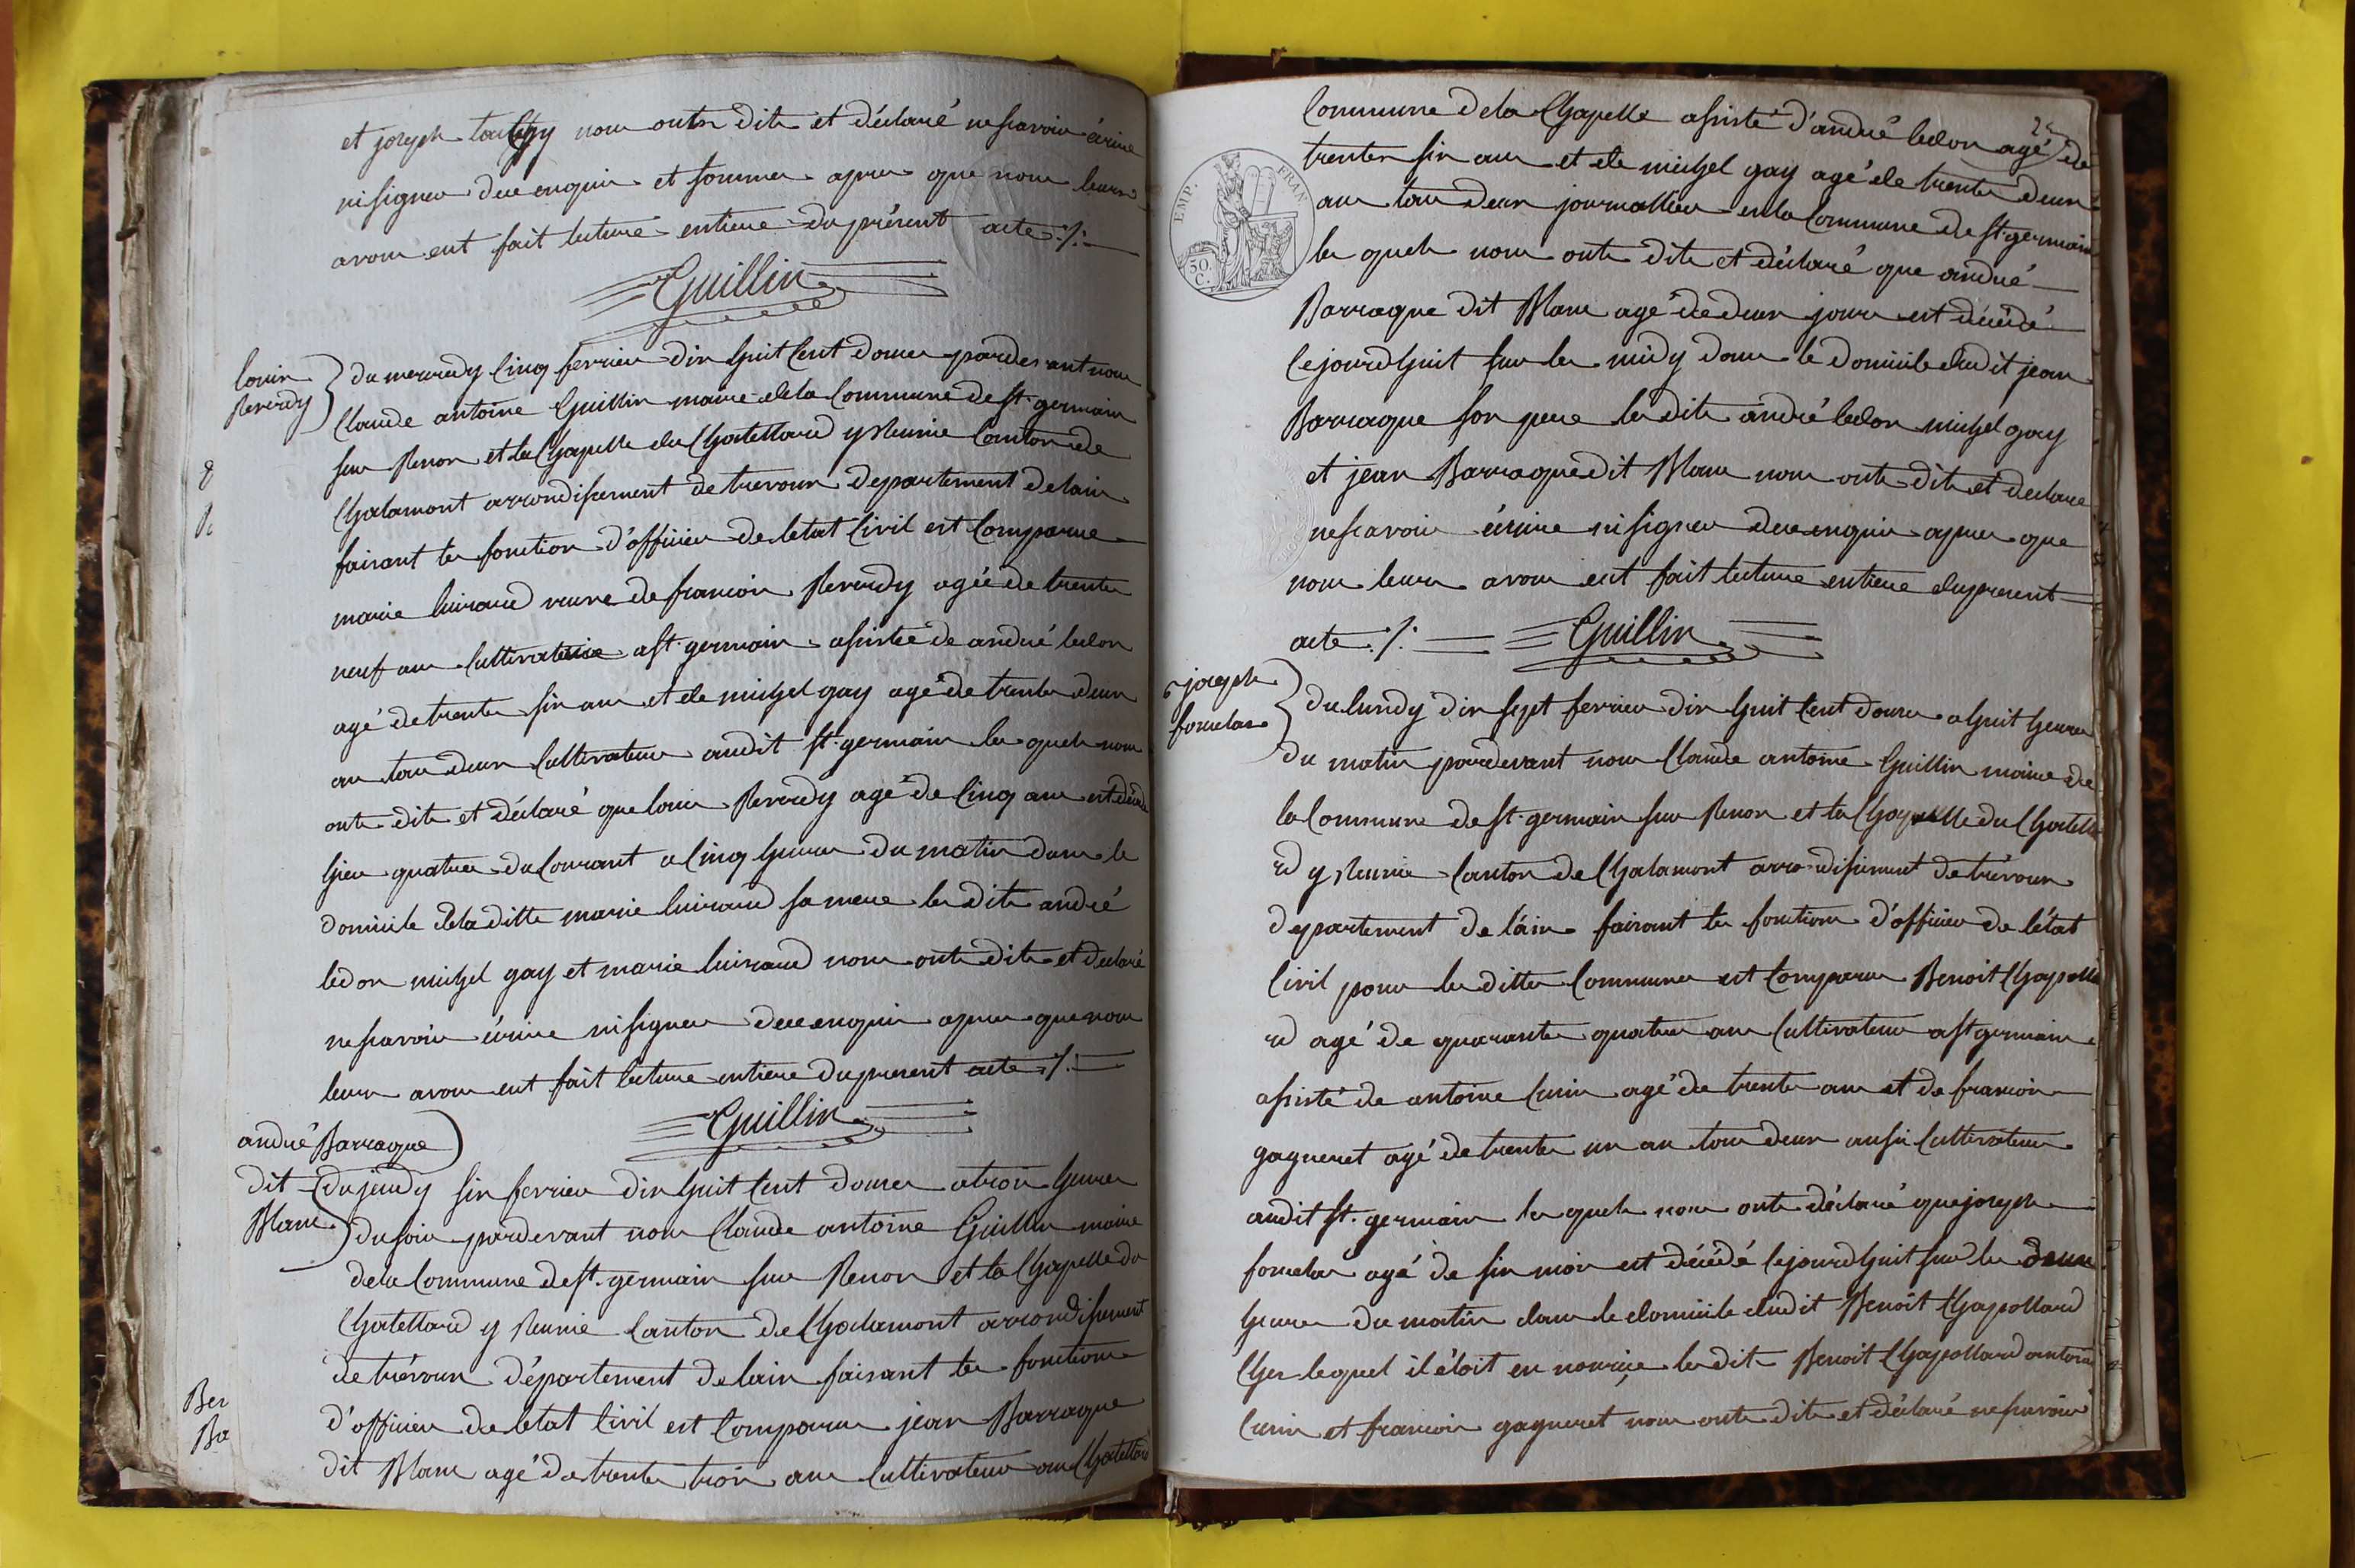 et joseph nous onts dits et déclaré ne scavoir écrire
ni signer de ce enquis et sommes apres que nous leurs
avons eut fait lecture entiere du présent acte ./.
Guillin
louis
Reverdy
du mercredy cinq fevrier dix huit cent douze pardevant nous
Claude antoine Guillin maire de la Commune de st. germain
sur Renon et la Chapelle du Chatellard y Reunie Canton de
Chalamont arrondissement de trevoux departement de lain
faisant les fonction d'officier de letat Civil est Comparue
marie luiraud veuve de francois Reverdy agée de trente
neuf ans Cultivatrice a st. germain assistée de andré ledon
agé de trente six ans et de michel gay agé de trente deux
an tous deux Cultivateur audit st. germain les quels nous
onts dits et déclaré que louis Reverdy agé de Cinq ans est décédé
hier quatre du Courant a Cinq heures du matin dans le
domicile de la ditte marie luiraud sa mere les dits andré
ledon michel gay et marie luiraud nous onts dits et declaré
ne scavoir écrire ni signer de ce enquis apres que nous
leurs avons eut fait lecture entiere du present acte ./.
Guillin
andré Barraque
dit
Blanc
du jeudy six fevrier dix huit Cent douze a trois heures
du soir pardevant nous Claude antoine Guillin maire
de la Commune de st. germain sur Renon et la Chapelle du
Chatellard y Reunie Canton de Chalamont arrondissement
de trévoux département de lain faisant les fonctions
d'officier de letat Civil est Comparu jean Barraque
dit Blanc agé de trente trois ans Cultivateur au Chatellard
8
R
Ber
Ba
25
Commune de la Chapelle assisté d'andré ledon agé de
trente six ans et de michel gay agé de trente deux
ans tous deux journallier en la Commune de st. germain
les quels nous onts dits et déclaré que andré
Barraque dit Blanc agé de deux jours est décédé
Cejourdhuit sur les midy dans le domicile dudit jean
Barraque son pere les dits andré ledon michel gay
et jean Barraque dit Blanc nous onts dits et declaré
ne scavoir écrire ni signer de ce enquis apres que
nous leurs avons eut fait lecture entiere du present
acte ./. Guillin
EMP. FRAN.
50.
C.
6 joseph
fonclas
du lundy dix sept fevrier dix huit Cent douze a huit heures
du matin pardevant nous Claude antoine Guillin maire de
la Commune de st. germain sur Renon et la Chapelle du Chatella
rd y Reunie Canton de Chalamont arrondissement de trévoux
departement de láin faisant les fonctions d'officier de létat
Civil pour les dittes Communes est Comparu Benoit Chapolla
rd agé de quarante quatre ans Cultivateur a st germain
assisté de antoine Cunin agé de trente ans et de francois
gagneret agé de trente un an tous deux aussi Cultivateurs
audit st. germain les quels nous onts déclaré que joseph
fonclas agé de six mois est décédé Cejourdhuit sur les deux
heures du matin dans le domicile dudit Benoit Chapollard
Chez lequel il étoit en nourice les dits Benoit Chapollard antoine
Cunin et francois gagneret nous onts dits et déclaré ne scavoir